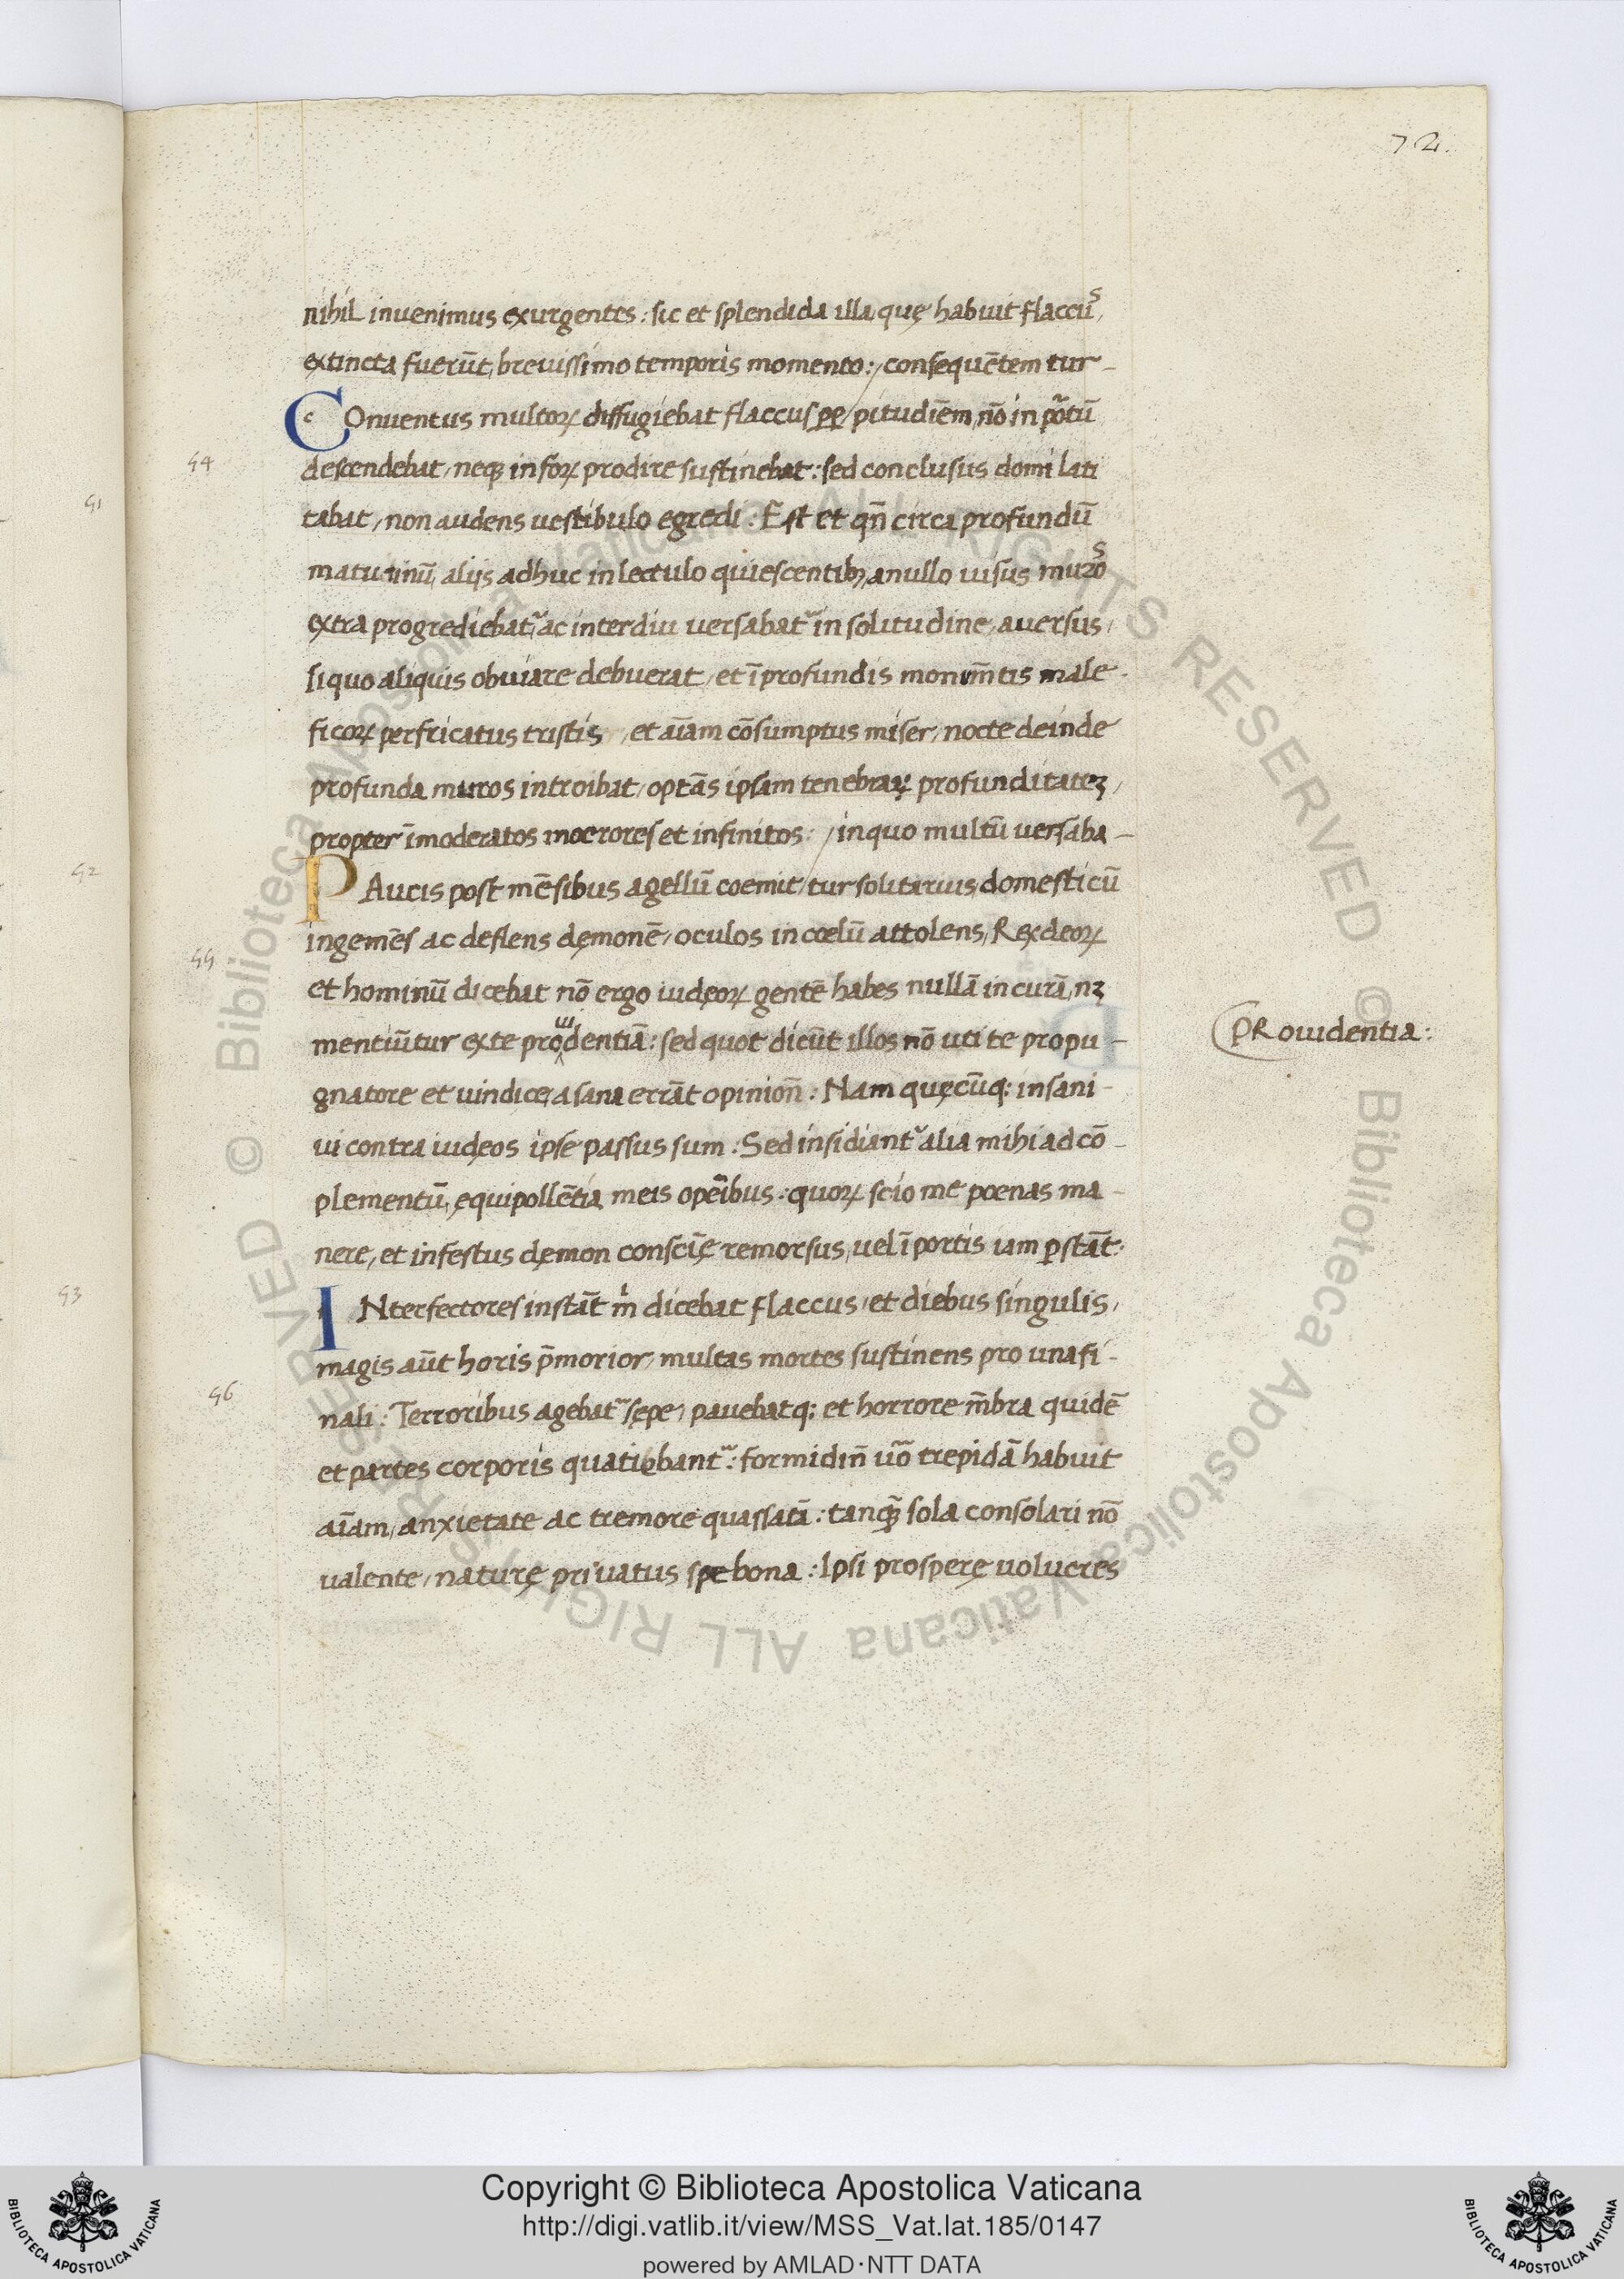 72.
nihil inuenimus exurgentes : sic et splendida illa quę habuit flaccus,
extincta fuerūt, breuissimo temporis momento : / consequētem tur-
COnuentus multoꝝ diffugiebat flaccus ꝑpe / pitudiēm, nō in portū
54
descendebat, neqꝫ in foꝝ prodire sustinebat : sed conclusus domi lati
51
tabat, non audens uestibulo egredi : Est et qn̄ circa profundū
matutinū, alijs adhuc in lectulo quiescentibꝫ, a nullo uisus muros
extra progrediebat᷑, ac interdiu uersabat᷑ in solitudine, auersus,
si quo aliquis obuiare debuerat, et ī profundis monum̄tis male-
ficoꝝ perfricatus tristis, et aīam cōsumptus miser, nocte deinde
profunda muros introibat, optās ipsam tenebraꝝ profunditateꝫ,
propter īmoderatos moerores et infinitos : / in quo multū uersaba-
52
PAucis post mēsibus agellū coemit / tur solitarius, domesticū
ingemēs ac deflens dęmonē, oculos in cœlū attolens, Rex deoꝝ
55
et hominū dicebat nō ergo iudęoꝝ gentē habes nullā in curā, nꝫ
mentiūtur ex te prouidentiā : sed quot dicūt illos nō uti te propu-
PRouidentia :
gnatore et uindice, a sana errāt opinion̄ : Nam quęcūqꝫ insani-
ui contra iudęos ipse passus sum : Sed insidiant᷑ alia mihi ad cō-
plementū, ęquipollētia meis operībus : quoꝝ scio me poenas ma-
nere, et infestus dęmon consciē remorsus, uel ī portis iam ꝑstāt :
53
INterfectores instāt m̄ dicebat flaccus, et diebus singulis,
magis aūt horis p̄morior, multas mortes sustinens pro una fi-
56
nali : Terroribus agebat᷑ sępe, pauebatqꝫ et horrore m̄bra quidē
et partes corporis quatiebant᷑ : formidin̄ uo᷑ trepidā habuit
aīam, anxietate ac tremore quassatā : tanqꝫ̄ sola consolari nō
ualente, naturę priuatus spe bona : Ipsi prosperę uolucres
Copyright © Biblioteca Apostolica Vaticana
http://digi.vatlib.it/view/MSS_Vat.lat.185/0147
powered by AMLAD·NTT DATA
BIBLIOTECA APOSTOLICA VATICANA
BIBLIOTECA APOSTOLICA VATICANA
© Biblioteca Apostolica Vaticana ALL RIGHTS RESERVED © Biblioteca Apostolica Vaticana ALL RIGHTS RESERVED